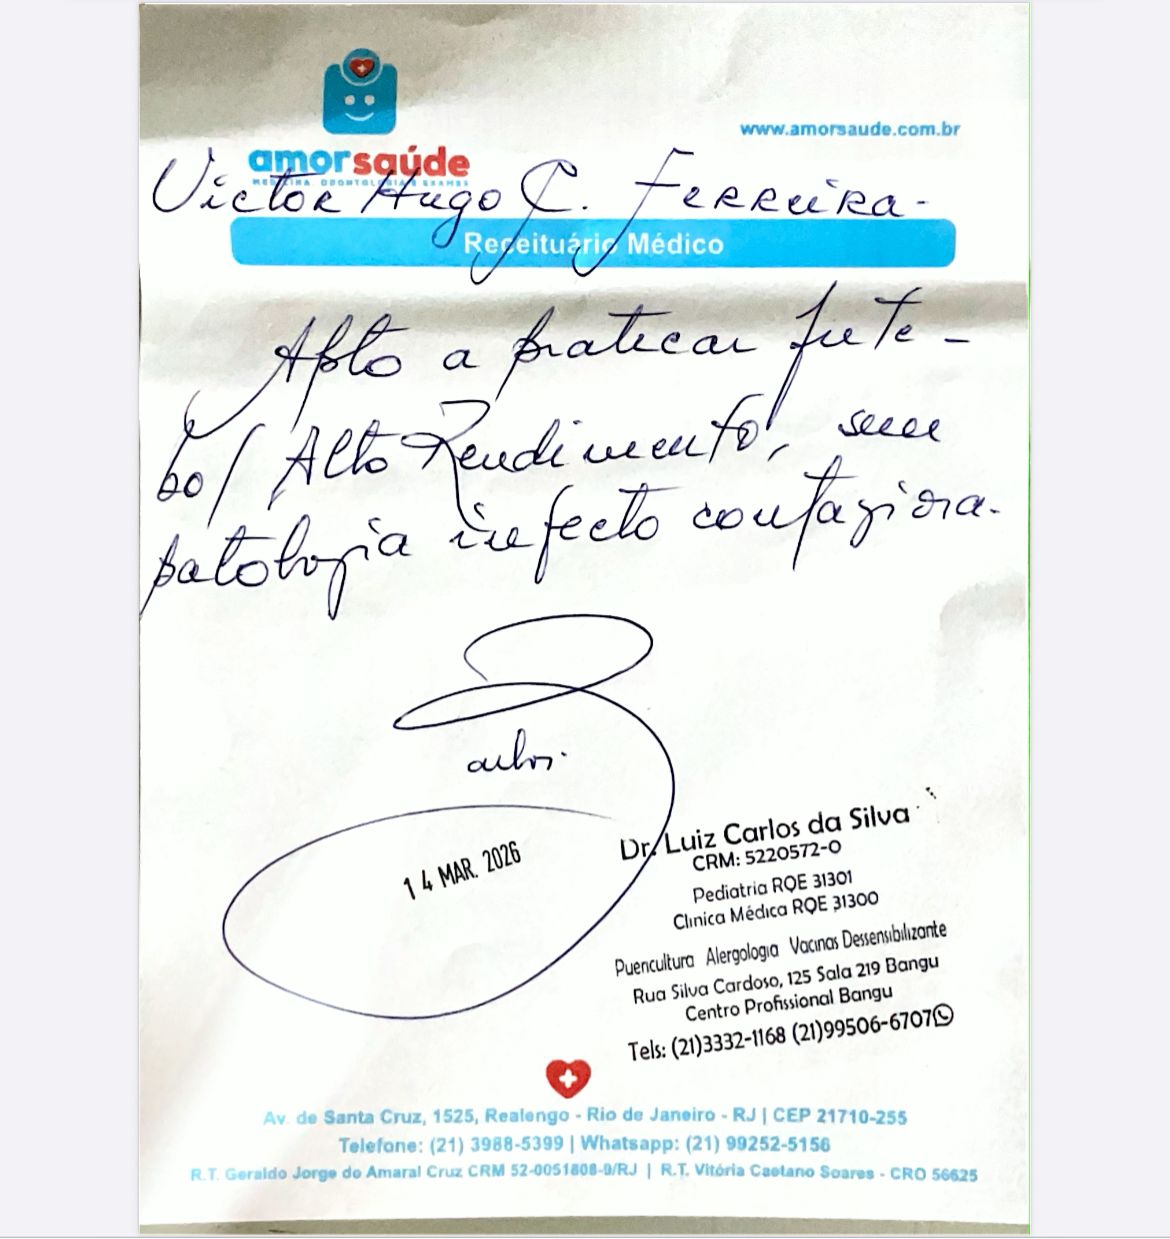 amorsaúde
MEDICINA, ODONTOLOGIA E EXAMES
www.amorsaude.com.br
Victor Hugo C. Ferreira.
Receituário Médico
Apto a praticar fute-
bol Alto Rendimento, sem
patologia infecto contagiosa.
1 4 MAR. 2026
Dr. Luiz Carlos da Silva
CRM: 5220572-0
Pediatria RQE 31301
Clínica Médica RQE 31300
Puericultura Alergologia Vacinas Dessensibilizante
Rua Silva Cardoso, 125 Sala 219 Bangu
Centro Profissional Bangu
Tels: (21)3332-1168 (21)99506-6707
Av. de Santa Cruz, 1525, Realengo - Rio de Janeiro - RJ | CEP 21710-255
Telefone: (21) 3988-5399 | Whatsapp: (21) 99252-5156
R.T. Geraldo Jorge do Amaral Cruz CRM 52-0051808-9/RJ | R.T. Vitória Caetano Soares - CRO 56625